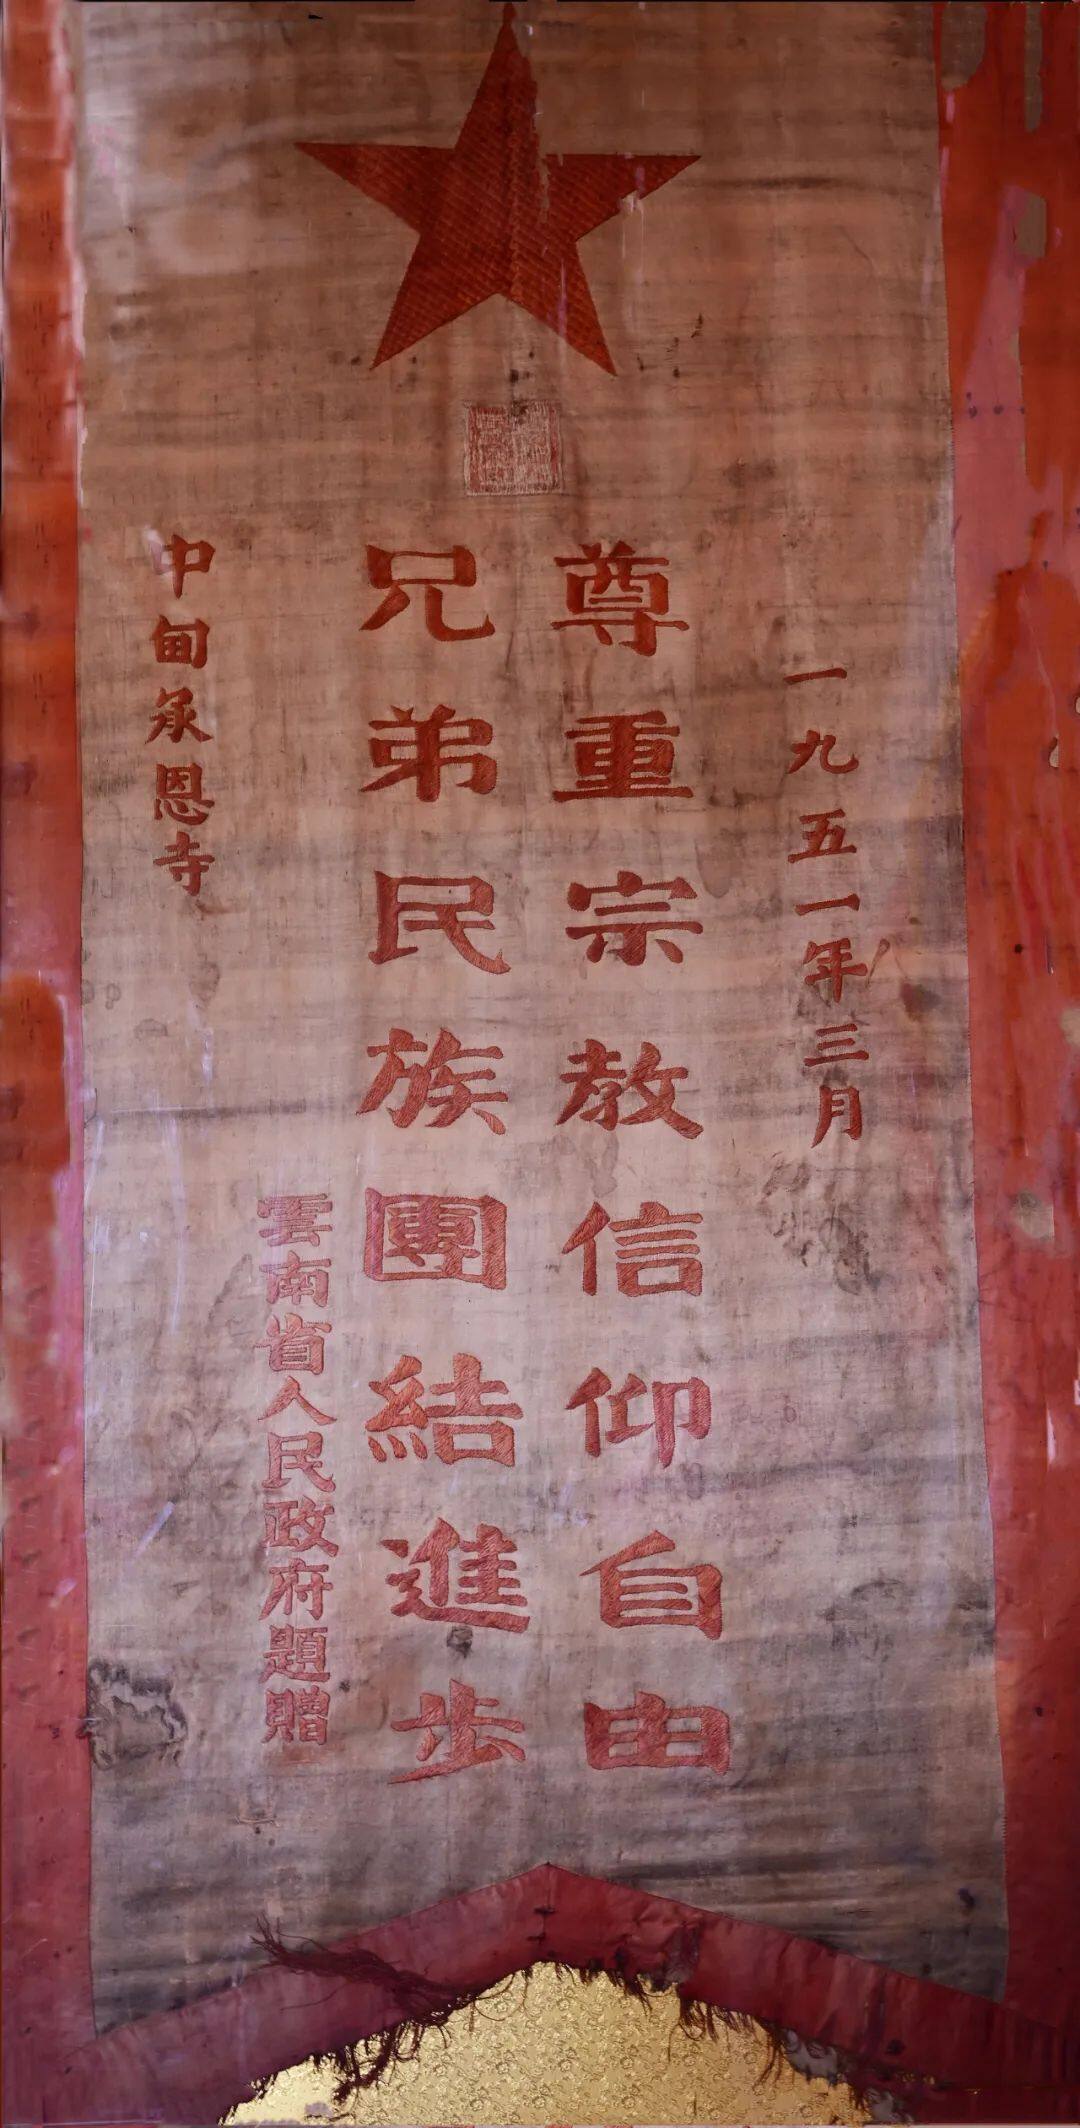 一九五一年三月
尊重宗教信仰自由
兄弟民族團結進步
雲南省人民政府題贈
中甸承恩寺